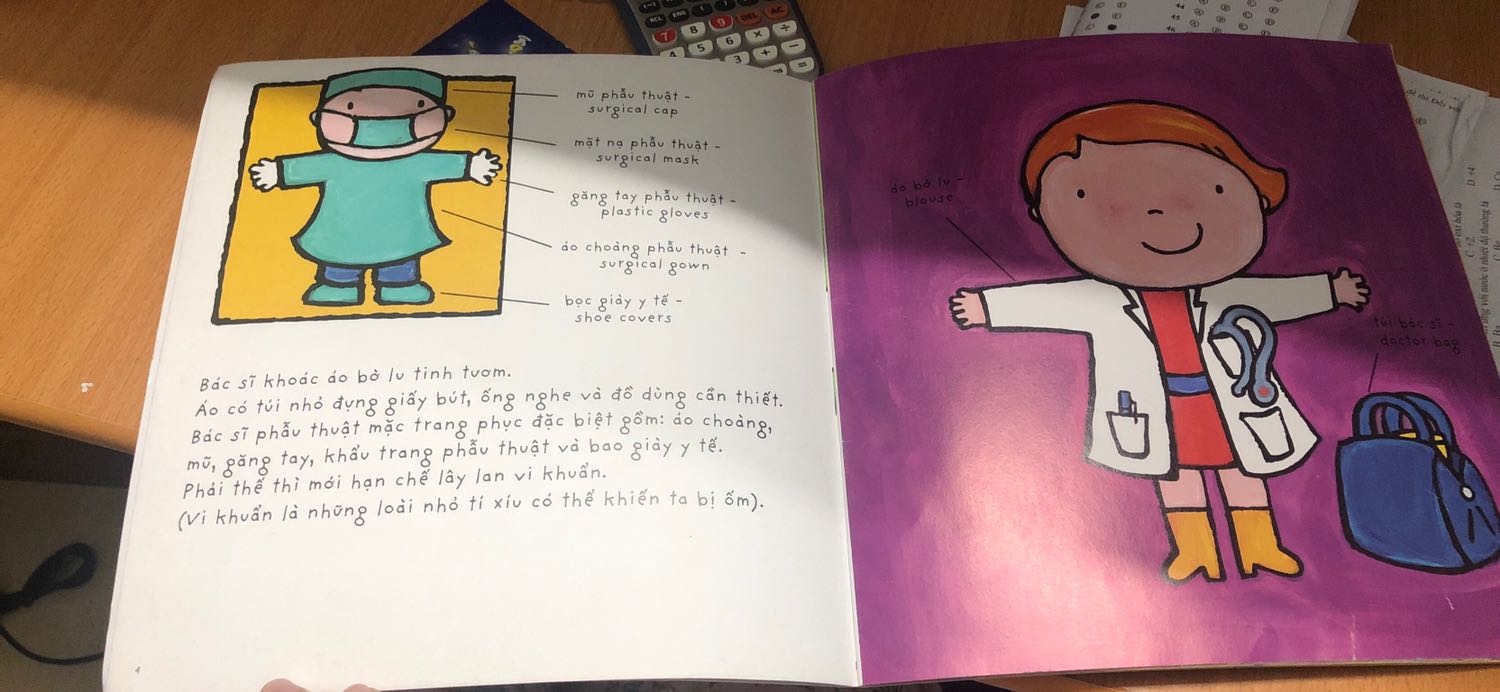 mũ phẫu thuật -
surgical cap
mặt nạ phẫu thuật -
surgical mask
găng tay phẫu thuật -
plastic gloves
áo choàng phẫu thuật -
surgical gown
bọc giày y tế -
shoe covers
Bác sĩ khoác áo bờ lu tinh tươm.
Áo có túi nhỏ đựng giấy bút, ống nghe và đồ dùng cần thiết.
Bác sĩ phẫu thuật mặc trang phục đặc biệt gồm: áo choàng,
mũ, găng tay, khẩu trang phẫu thuật và bao giày y tế.
Phải thế thì mới hạn chế lây lan vi khuẩn.
(Vi khuẩn là những loài nhỏ tí xíu có thể khiến ta bị ốm).
4
áo bờ lu -
blouse
túi bác sĩ -
doctor bag
RCL ENG ( ) DEL AC
7 8 9
4 5 6 × ÷
3 + -
=
44
45
46